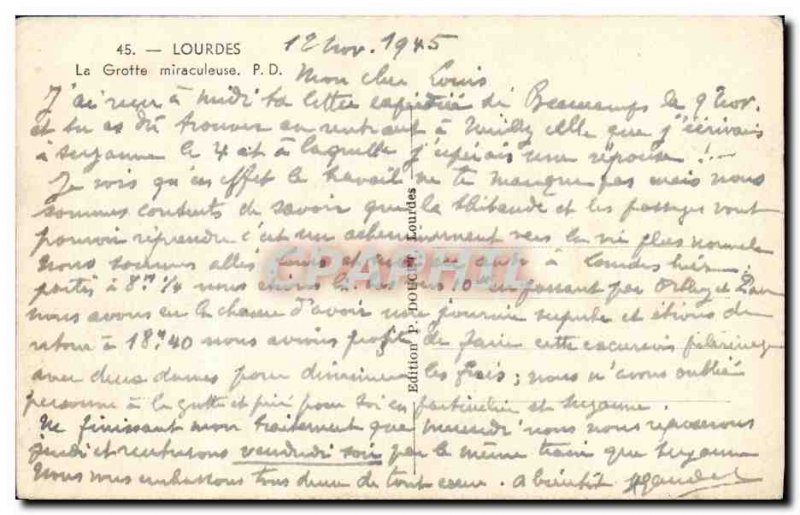 45. — LOURDES
La Grotte miraculeuse. P. D.
12 Nov. 1945
Mon cher Louis
J'ai reçu à midi ta lettre expédiée de Beauchamps le 9 Nov.
et tu as dû trouver en rentrant à Neuilly celle que j'écrivais
à Suzanne le 4 et à laquelle j'espérais une réponse !
Je vois qu'en effet le travail ne te manque pas mais nous
sommes contents de savoir que la et les passages vont
pouvoir reprendre c'est un acheminement vers la vie plus normale
Nous sommes allés en auto à Lourdes hier
partis à 8h 1/4 nous étions 10h en passant par Orthez et Pau
nous avons eu la chance d'avoir une journée superbe et étions de
retour à 18h40 nous avions profité de faire cette excursion pèlerinage
avec deux dames pour diminuer les frais ; nous n'avons oublié
personne à la grotte et prié pour toi en particulier et Suzanne.
Ne finissant mon traitement que mercredi nous nous reposerons
jeudi et rentrerons vendredi soir par le même train que Suzanne
Nous vous embrassons tous deux de tout coeur. a bientôt
Edition P. DOUCET, Lourdes
CPAPHIL